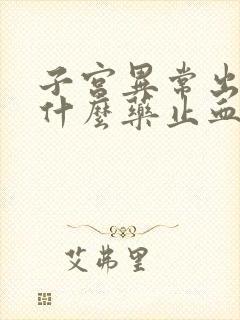 子宮異常出
什麼藥止血
艾弗里